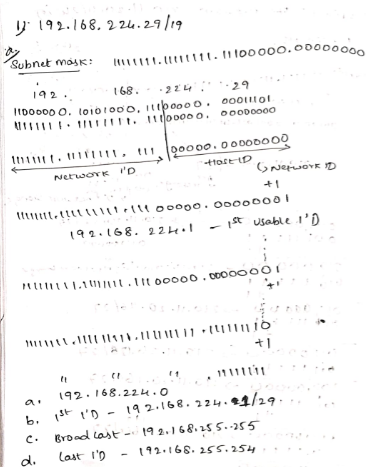 1) 192.168.224.29/19
a)
Subnet mask: 11111111.11111111.11100000.00000000
192. 168. 224. 29
11000000. 10101000. 11100000. 00011101
11111111. 11111111. 11100000. 00000000
11111111. 11111111. 111 00000.00000000
Network I'D Host ID
↳ Network ID
+1
11111111.11111111.111 00000.00000001
192.168. 224.1 - 1st usable I'D
11111111.11111111.11100000.00000001
+1
11111111.11111111.11111111.11111110
+1
" " " . 11111111
a. 192.168.224.0
b. 1st I'D - 192.168.224. /29.
c. Broadcast - 192.168.255.255
d. Last I'D - 192.168.255.254